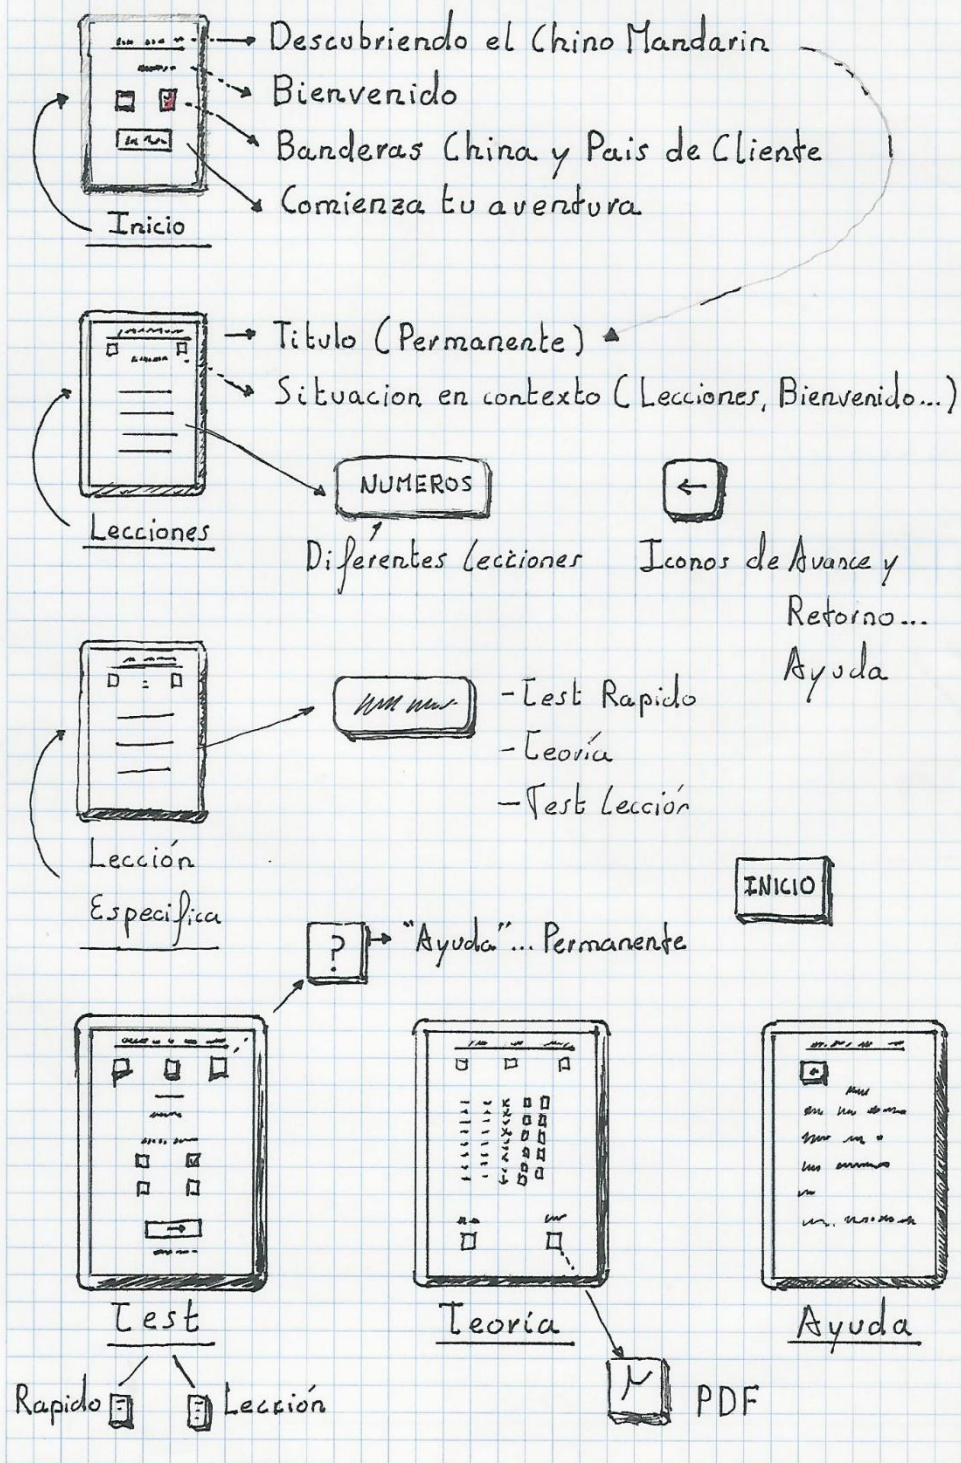 Descubriendo el Chino Mandarin
Bienvenido
Banderas China y Pais de Cliente
Comienza tu aventura
Inicio
Titulo (Permanente)
Situacion en contexto (Lecciones, Bienvenido...)
NUMEROS
←
Lecciones
Diferentes lecciones
Iconos de Avance y
Retorno...
Ayuda
- Test Rapido
- Teoría
- Test Lección
Lección
Especifica
INICIO
?
"Ayuda"... Permanente
Test
Teoría
Ayuda
Rapido
Lección
PDF